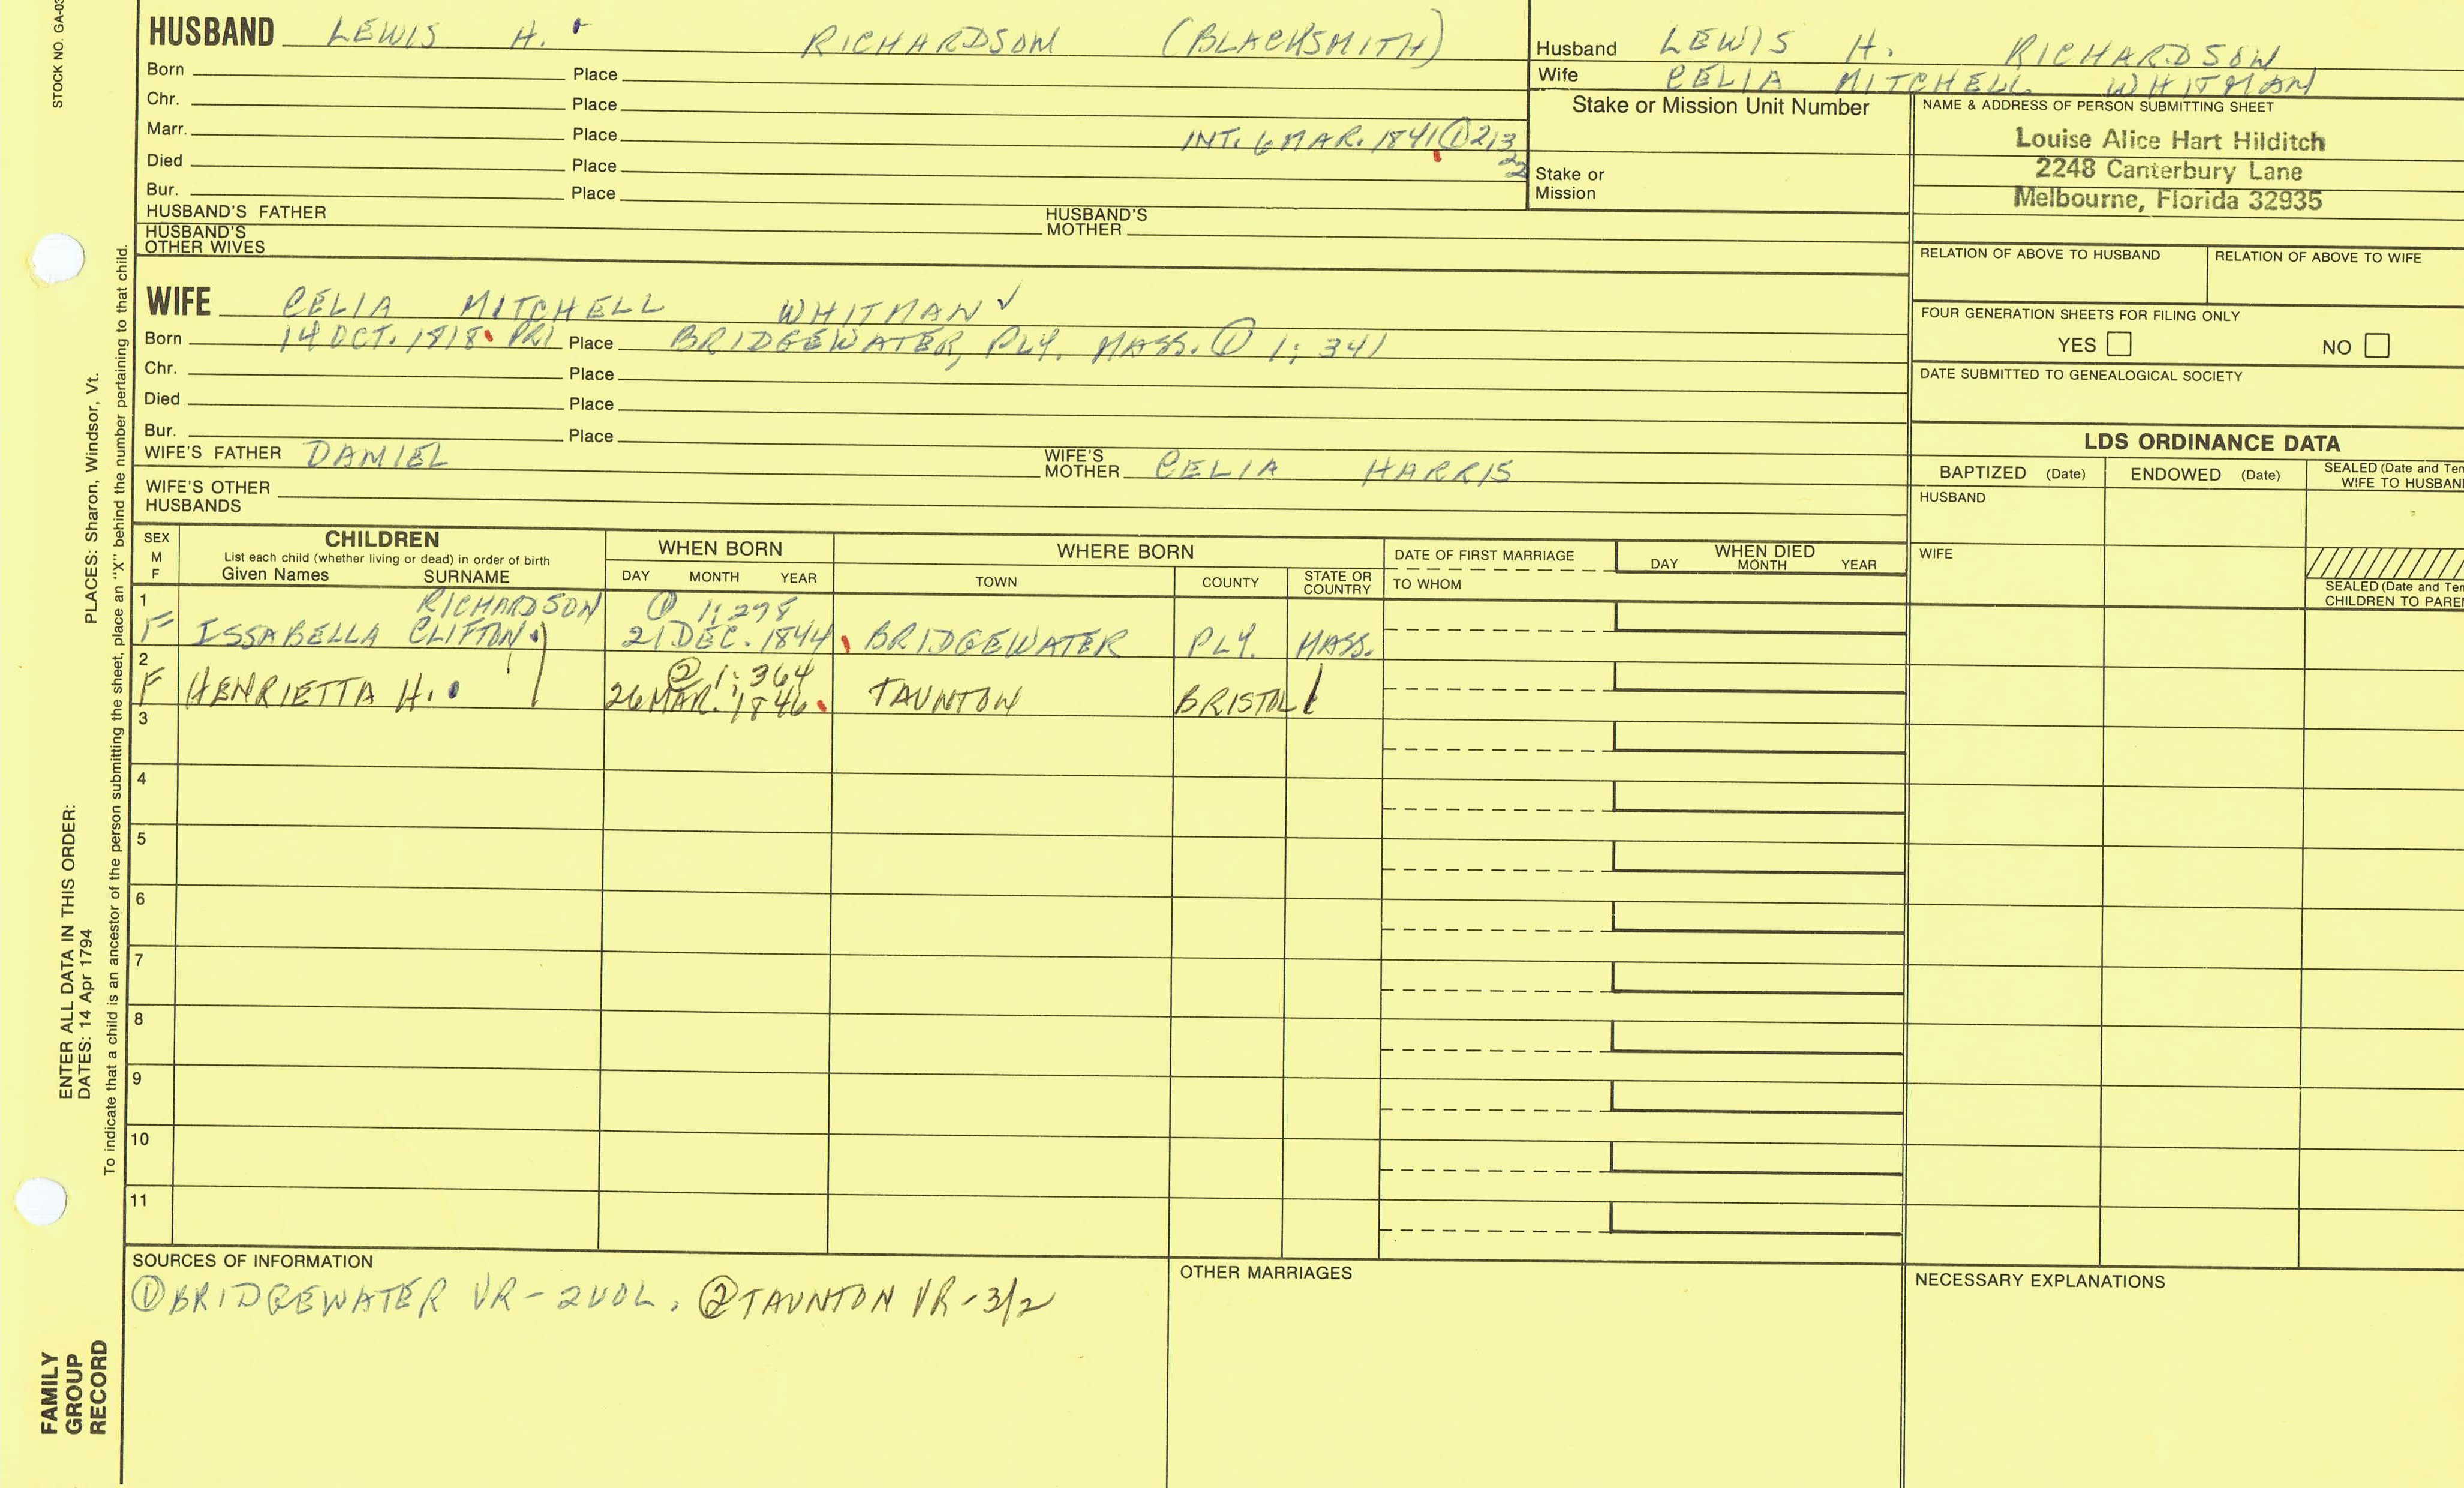 STOCK NO. GA-03
HUSBAND LEWIS H. RICHARDSON (BLACKSMITH)
Born Place
Chr. Place
Marr. Place INT. 6 MAR. 1841 ① 2;3
22
Died Place
Bur. Place
HUSBAND'S FATHER HUSBAND'S MOTHER
HUSBAND'S OTHER WIVES
Husband LEWIS H. RICHARDSON
Wife CELIA MITCHELL WHITMAN
Stake or Mission Unit Number
Stake or Mission
NAME & ADDRESS OF PERSON SUBMITTING SHEET
Louise Alice Hart Hilditch
2248 Canterbury Lane
Melbourne, Florida 32935
RELATION OF ABOVE TO HUSBAND RELATION OF ABOVE TO WIFE
FOUR GENERATION SHEETS FOR FILING ONLY
YES NO
DATE SUBMITTED TO GENEALOGICAL SOCIETY
WIFE CELIA MITCHELL WHITMAN ✓
Born 14 OCT. 1818 PR1 Place BRIDGEWATER, PLY. MASS. ① 1; 341
Chr. Place
Died Place
Bur. Place
WIFE'S FATHER DANIEL WIFE'S MOTHER CELIA HARRIS
WIFE'S OTHER HUSBANDS
LDS ORDINANCE DATA
BAPTIZED (Date) ENDOWED (Date) SEALED (Date and Tem
WIFE TO HUSBAN
HUSBAND
WIFE
SEALED (Date and Tem
CHILDREN TO PARE
SEX M F CHILDREN WHEN BORN WHERE BORN DATE OF FIRST MARRIAGE WHEN DIED
List each child (whether living or dead) in order of birth
Given Names SURNAME DAY MONTH YEAR TOWN COUNTY STATE OR COUNTRY TO WHOM DAY MONTH YEAR
1 RICHARDSON ① 1; 278
F ISSABELLA CLIFTON 21 DEC. 1844 BRIDGEWATER PLY. MASS.
2 ② 1; 364
F HENRIETTA H. 26 MAR. 1846 TAUNTON BRISTOL
3
4
5
6
7
8
9
10
11
SOURCES OF INFORMATION
① BRIDGEWATER VR - 2 VOL. ② TAUNTON VR - 3/2
OTHER MARRIAGES
NECESSARY EXPLANATIONS
PLACES: Sharon, Windsor, Vt.
ENTER ALL DATA IN THIS ORDER:
DATES: 14 Apr 1794
To indicate that a child is an ancestor of the person submitting the sheet, place an "X" behind the number pertaining to that child.
FAMILY
GROUP
RECORD